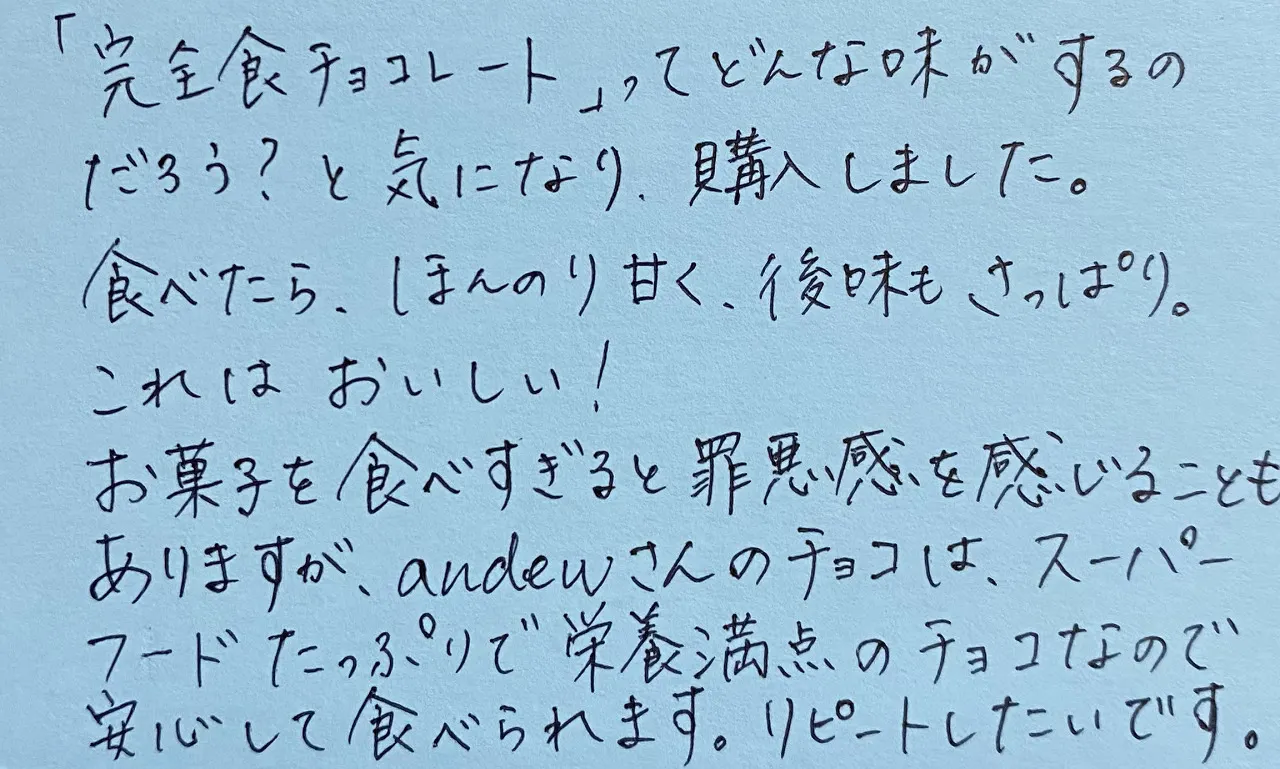 「完全食チョコレート」ってどんな味がするの
だろう?と気になり、購入しました。
食べたら、ほんのり甘く、後味もさっぱり。
これは おいしい!
お菓子を食べすぎると罪悪感を感じることも
ありますが、andewさんのチョコは、スーパー
フードたっぷりで栄養満点のチョコなので
安心して食べられます。リピートしたいです。